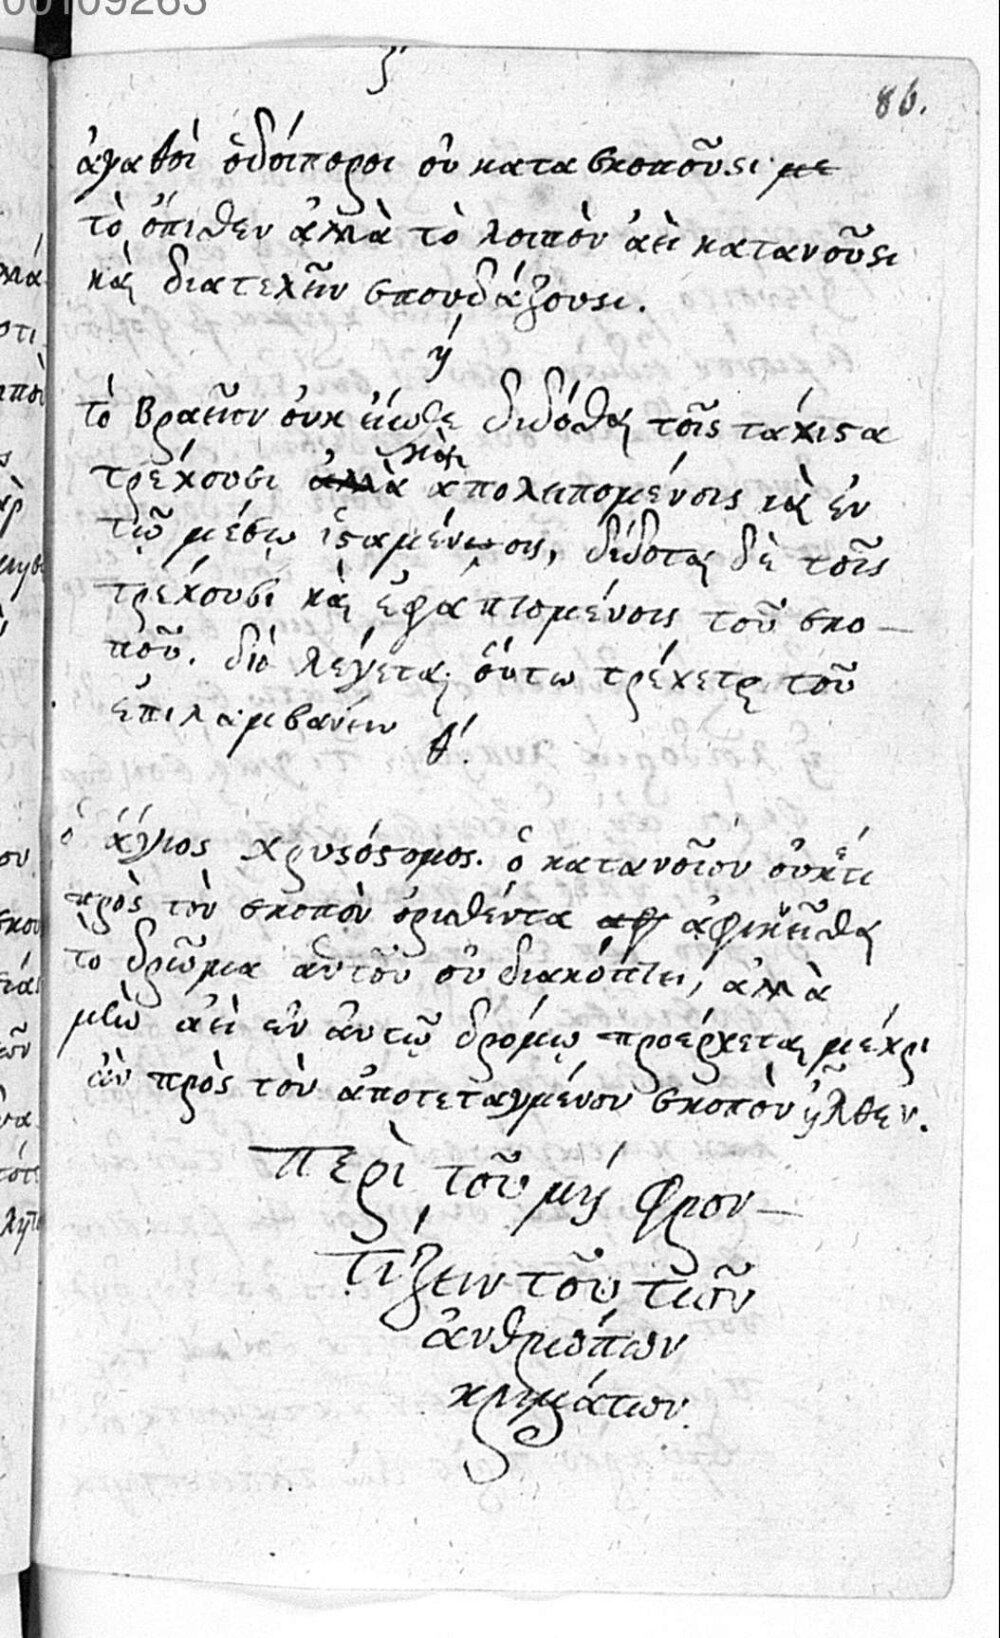 00109263
ζ´
86.
ἀγαθοὶ ὁδοίποροι οὐ κατασκοποῦσι με
τὸ ὄπιθεν ἀλλὰ τὸ λοιπὸν ἀεὶ κατανοῦσι
καὶ διατελεῖν σπουδάζουσι.
ή
τὸ βραεῖον οὐκ εἴωθε διδόθαι τοῖς τάχιστα
τρέχουσι ἀλλὰ καὶ ἀπολειπομένοις καὶ ἐν
τῷ μέσῳ ἱσταμένοις, δίδοται δὲ τοῖς
τρέχουσι καὶ ἐφαπτομένοις τοῦ σκο-
ποῦ. διὸ λέγεται οὕτω τρέχετε τοῦ
ἐπιλαμβανειν
θ´.
ὁ ἅγιος χρυσόστομος. ὁ κατανοῖον οὐκέτι
πρὸς τὸν σκοπὸν ὁριθέντα αφ ἀφικεῖθαι
τὸ δρῶμα αὐτοῦ οὐ διακόπτει, ἀλλὰ
ἀεὶ ἐν αὐτῷ δρόμῳ προέρχεται μέχρι
ἂν πρὸς τὸν ἀποτεταγμένον σκοπὸν ἦλθεν.
Περὶ τοῦ μή φρον-
τίζειν τοῦ τῶν
ἀνθρώπων
κριμάτων.